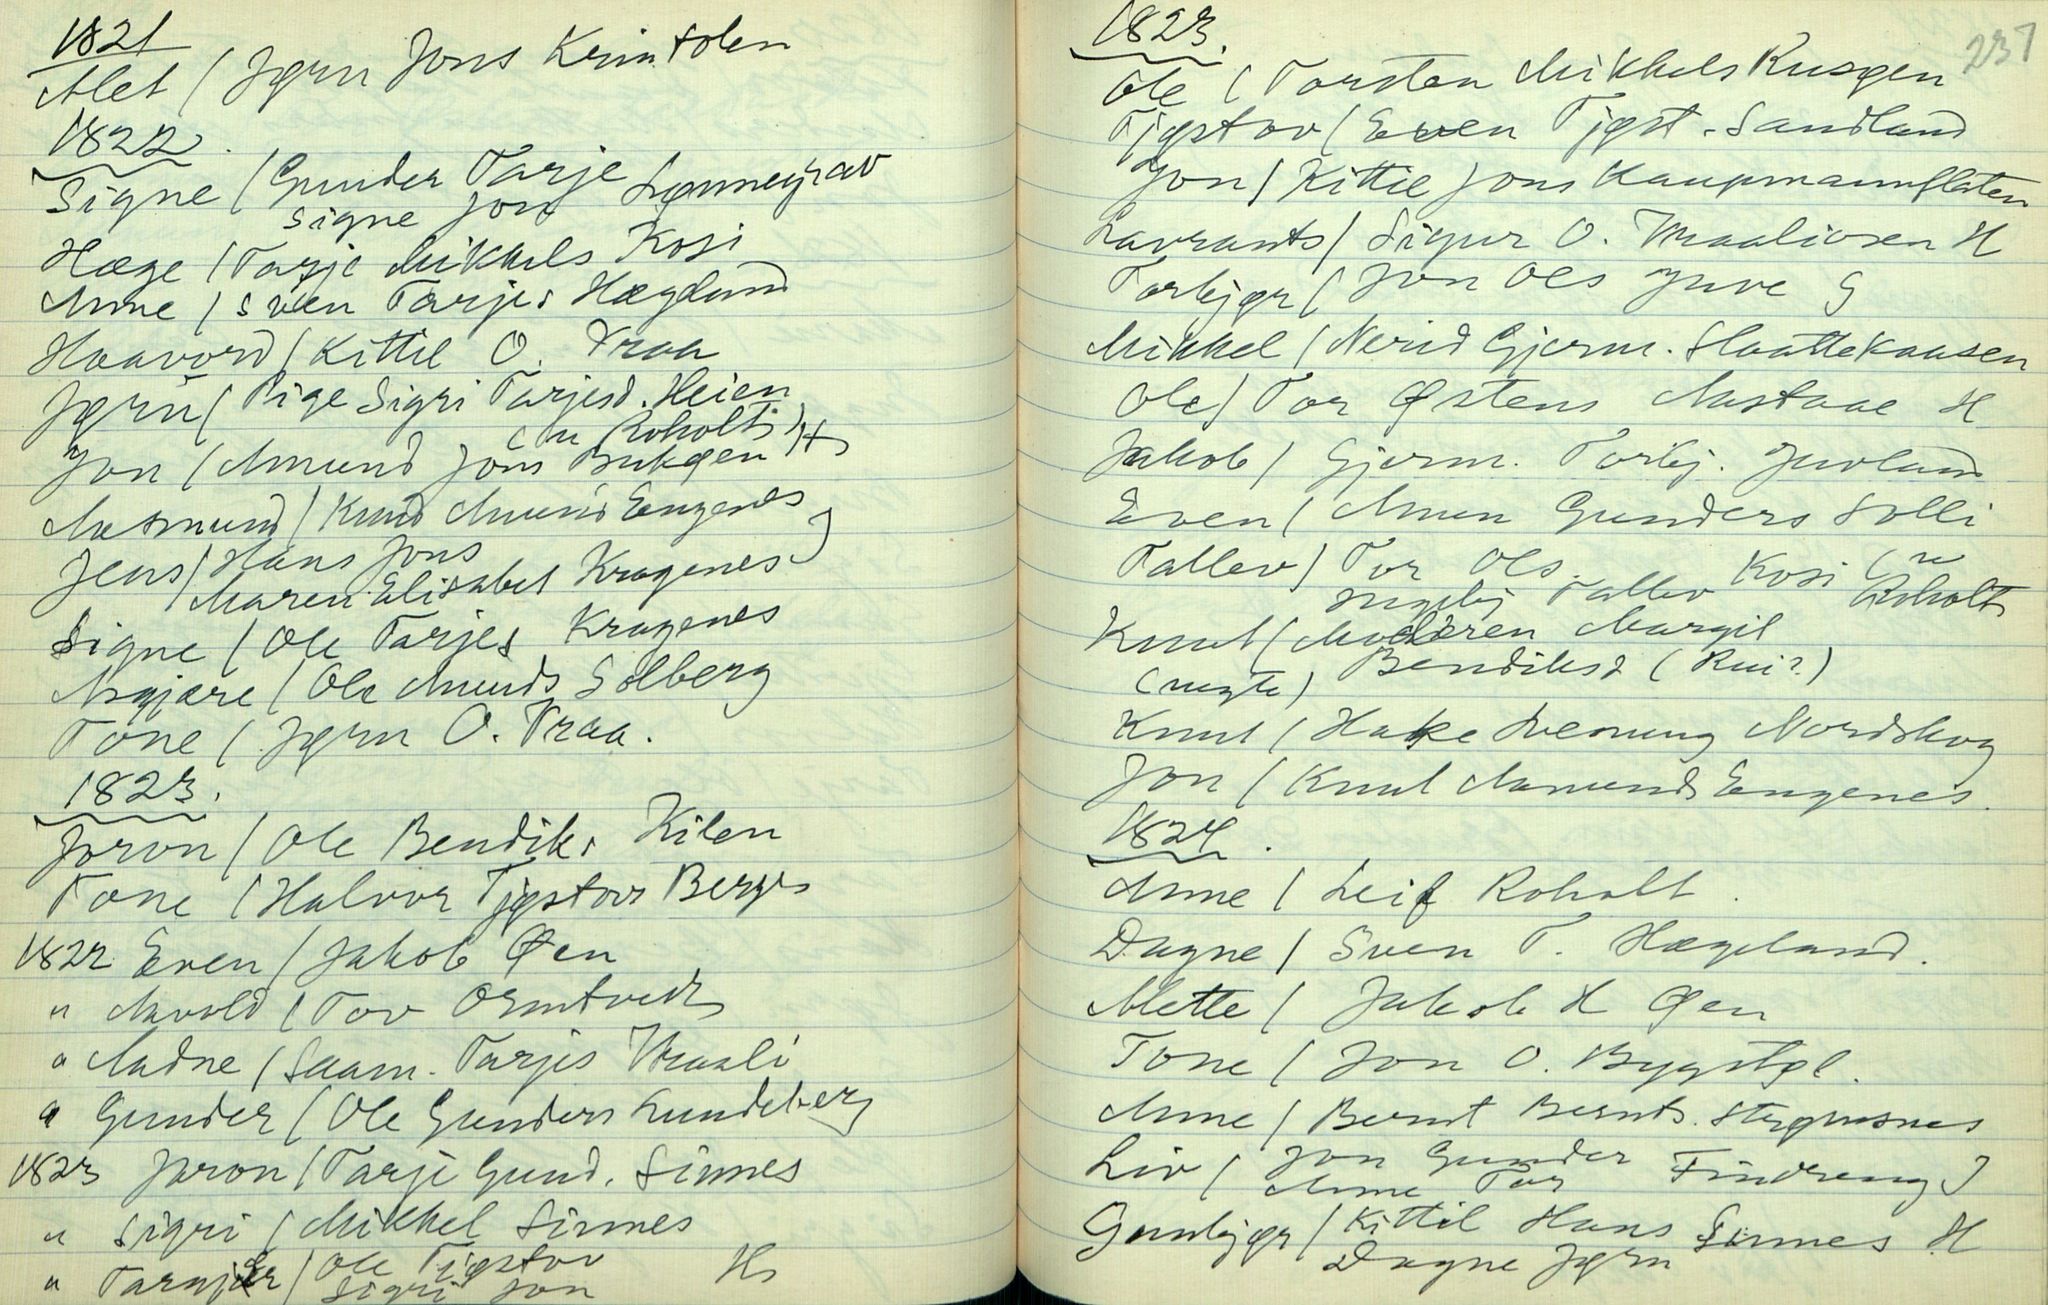 1821
Alet / Jørn Jons Krintolen
1822.
Signe / Gunder Tarje Lønnegrav
Signe Jon
Hæge / Tarje Mikkels Kosi
Anne / Sven Tarjes Hægland
Haavord / Kittil O. Traa
Jørn / Pige Sigri Tarjesd. Heien
(n Roholt)
Jon / Amund Jons Bukøen H
Aasmund / Knud Amunds Engenes
Jens / Hans Jons
Maren Elisabet Kragenes J
Signe / Ole Tarjes Kragenes
Asgjære / Ole Amunds Solberg
Tone / Jørn O. Traa.
1823.
Joron / Ole Bendiks Kilen
Tone / Halvor Tjøstovs Berge
1822 Even / Jakob Øen
" Aavold / Tov Ormtvedt
" Aadne / Saam. Tarjes Vraali
" Gunder / Ole Gunders Lundeberg
1823 Joron / Tarje Gund. Sinnes
" Sigri / Mikkel Sinnes
" Tarajer / Ole Tjøstov H
Sigri Jon
237
1823.
Ole / Torsten Mikkels Rusøen
Tjøstov / Even Tjøst. Sandland
Jon / Kittil Jons Kaupmannflaten
Lavrants / Sigur O. Vraaliosen H
Torbjør / Jon Ols Juve G
Mikkel / Nerid Gjerm. Slaattekaasen
Ole / Tor Østens Aastaae H
Jakob / Gjerm. Torbj. Juvland
Even / Amun Gunders Solli
Tallev / Tor Ols. Kosi (n
Ingebj Tallev Roholt
Knut / Moderen Margit
(uegte) Bendiksd (Rui?)
Knut / Hake Svenung Nordskog
Jon / Knut Aamunds Engenes.
1824.
Anne / Leif Roholt.
Dagne / Sven T. Hægeland.
Mette / Jakob H Øen
Tone / Jon O. Bygstøl.
Anne / Bernt Bernts.
Liv / Jon Gunder Findreng J
Anne Tor
Gunbjør / Kittil Hans Sinnes H
Dagne Jørn